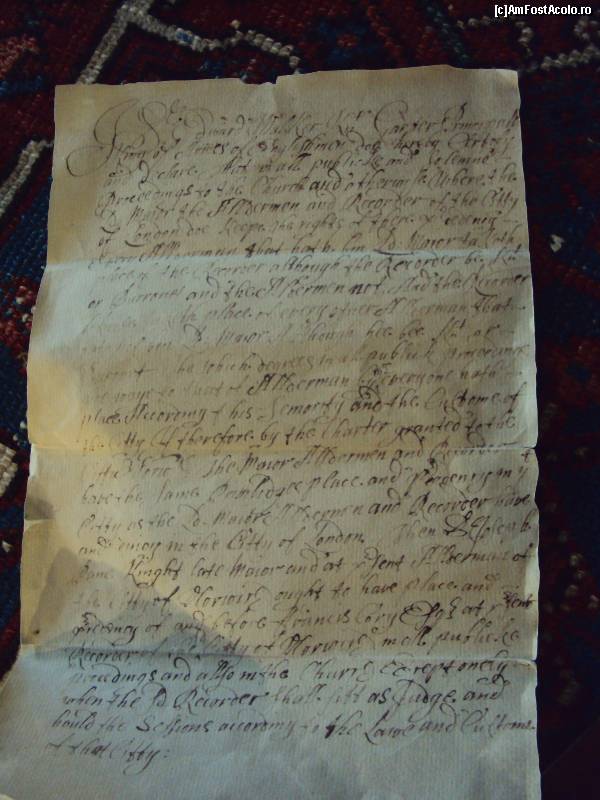 [c]AmFostAcolo.ro
Sr Edward Walker Kt Garter Principall
King of Armes of Englishmen doe hereby Certify
and declare that in all publicke and solemne
Proceedings to the Church and otherwise where the
Ld Maior the Aldermen and Recorder of the Citty
of London doe keepe the rights of there Precedency
every Alderman that hath bin Ld Maior taketh
place of the Recorder although the Recorder be Kt
or and the Aldermen not And the Recorder
place of every other Alderman that
Ld Maior Although hee bee Kt or
which degrees in all publick proceedings
Alderman everyone
place According to his Seniority and the Custome of
the Citty If therefore by the Charter granted to the
Citty The Maior Aldermen and Recorder
have the same Priviledges place and Precedency in
Citty as the Ld Maior Aldermen and Recorder have
and enioy in the Citty of London Then
Knight late Maior and at Alderman of
the Citty of Norwich ought to have place and
precedency of and before Francis Cory Esqr at
Recorder of the Citty of Norwich in all publicke
proceedings and also in the Church Except onely
when the sd Recorder shall sitt as Judge and
hould the Sessions according to the Laws and Customes
of that Citty: